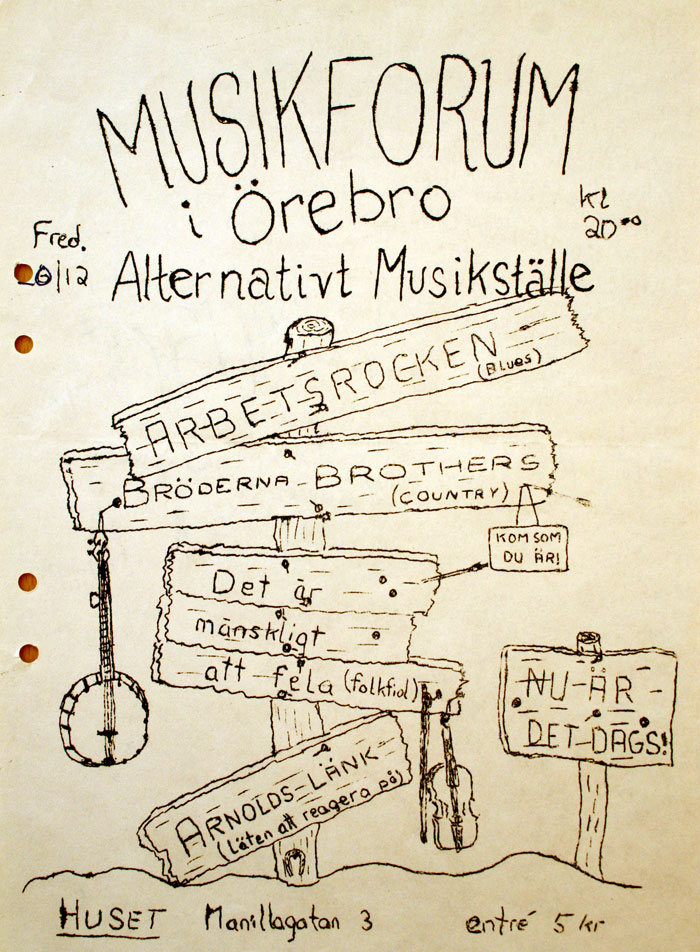 MUSIKFORUM
i Örebro
Fred.
20/12
kl
20⁰⁰
Alternativt Musikställe
ARBETSROCKEN
(BLUES)
BRÖDERNA BROTHERS
(COUNTRY)
KOM SOM
DU ÄR!
Det är
mänskligt
att fela (folkfiol)
NU ÄR
DET DAGS!
ARNOLDS LÄNK
(låten att reagera på)
HUSET Manillagatan 3 entré 5 kr